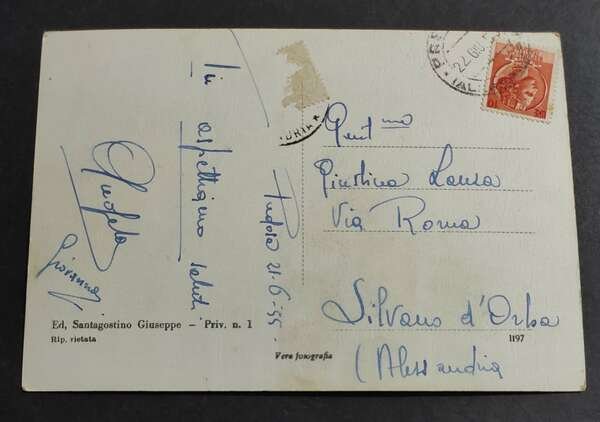 Vi aspettiamo saluti
Angela
Giovanna
Predosa 21-6-55
Gent.mo
Giustina Laura
Via Roma
Silvano d'Orba
(Alessandria
Ed, Santagostino Giuseppe — Priv. n. 1
Rip. vietata
Vera fotografia
1197